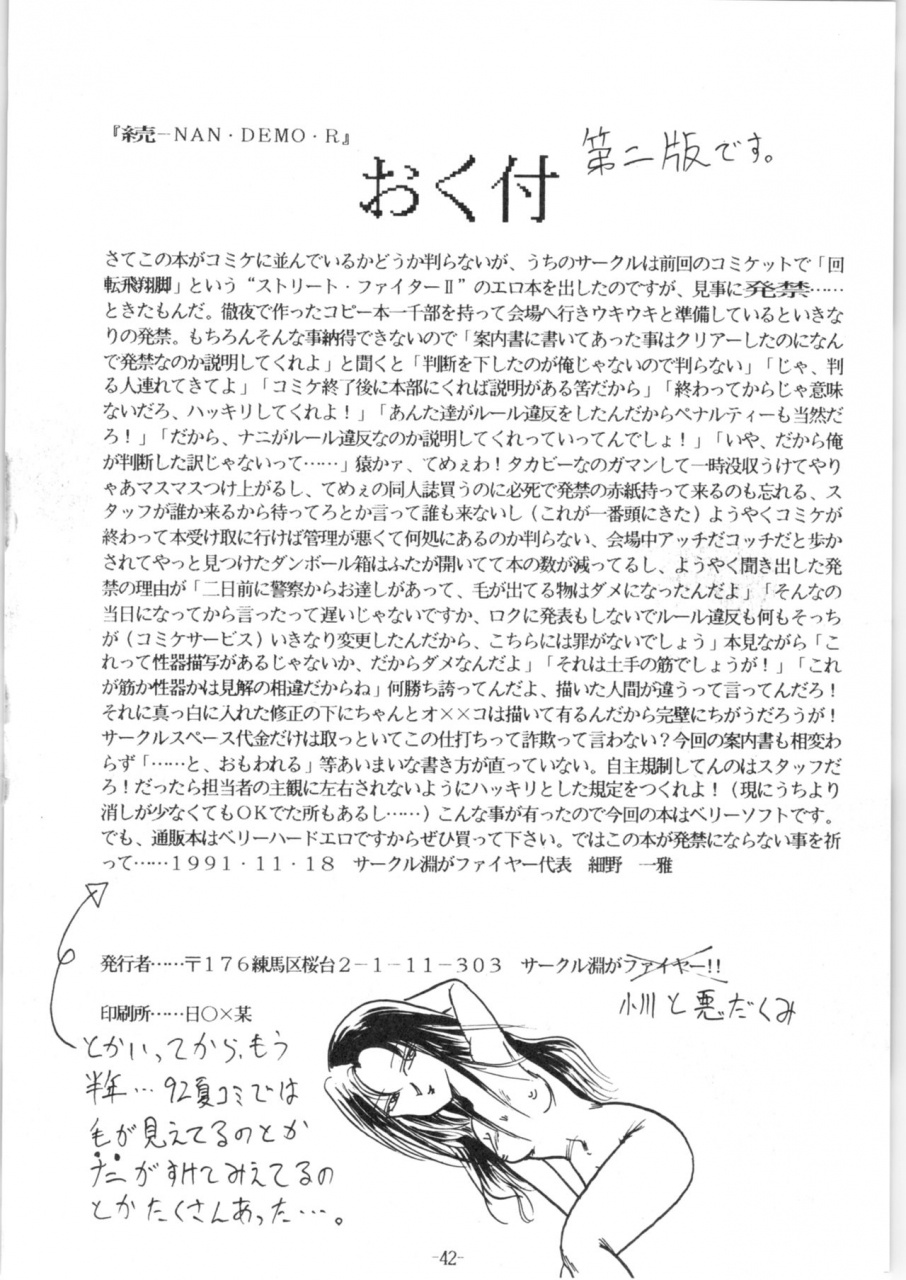 『続−NAN・DEMO・R』
第二版です。
おく付
さてこの本がコミケに並んでいるかどうか判らないが、うちのサークルは前回のコミケットで「回
転飛翔脚」という“ストリート・ファイターⅡ”のエロ本を出したのですが、見事に発禁……
ときたもんだ。徹夜で作ったコピー本一千部を持って会場へ行きウキウキと準備しているといきな
りの発禁。もちろんそんな事納得できないので「案内書に書いてあった事はクリアーしたのになん
で発禁なのか説明してくれよ」と聞くと「判断を下したのが俺じゃないので判らない」「じゃ、判
る人連れてきてよ」「コミケ終了後に本部にくれば説明がある筈だから」「終わってからじゃ意味
ないだろ、ハッキリしてくれよ！」「あんた達がルール違反をしたんだからペナルティーも当然だ
ろ！」「だから、ナニがルール違反なのか説明してくれっていってんでしょ！」「いや、だから俺
が判断した訳じゃないって……」猿かァ、てめぇわ！タカビーなのガマンして一時没収うけてやり
ゃあマスマスつけ上がるし、てめぇの同人誌買うのに必死で発禁の赤紙持って来るのも忘れる、ス
タッフが誰か来るから待ってろとか言って誰も来ないし（これが一番頭にきた）ようやくコミケが
終わって本受け取に行けば管理が悪くて何処にあるのか判らない、会場中アッチだコッチだと歩か
されてやっと見つけたダンボール箱はふたが開いてて本の数が減ってるし、ようやく聞き出した発
禁の理由が「二日前に警察からお達しがあって、毛が出てる物はダメになったんだよ」「そんなの
当日になってから言ったって遅いじゃないですか、ロクに発表もしないでルール違反も何もそっち
が（コミケサービス）いきなり変更したんだから、こちらには罪がないでしょう」本見ながら「こ
れって性器描写があるじゃないか、だからダメなんだよ」「それは土手の筋でしょうが！」「これ
が筋か性器かは見解の相違だからね」何勝ち誇ってんだよ、描いた人間が違うって言ってんだろ！
それに真っ白に入れた修正の下にちゃんとオ××コは描いて有るんだから完璧にちがうだろうが！
サークルスペース代金だけは取っといてこの仕打ちって詐欺って言わない？今回の案内書も相変わ
らず「……と、おもわれる」等あいまいな書き方が直っていない。自主規制してんのはスタッフだ
ろ！だったら担当者の主観に左右されないようにハッキリとした規定をつくれよ！（現にうちより
消しが少なくてもＯＫでた所もあるし……）こんな事が有ったので今回の本はベリーソフトです。
でも、通販本はベリーハードエロですからぜひ買って下さい。ではこの本が発禁にならない事を祈
って……１９９１・１１・１８　サークル淵がファイヤー代表　細野　一雅
発行者……〒１７６練馬区桜台２−１−１１−３０３　サークル淵がファイヤー!!
小川と悪だくみ
印刷所……日○×某
とかいってから、もう
半年…92夏コミでは
毛が見えてるのとか
ナニがすけてみえてるの
とかたくさんあった…。
-42-